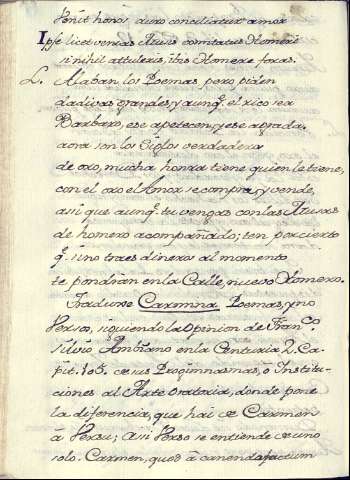 Venit honos auro conciliatur amor
Ipse licet venias Musis comitatus Homere
si nihil attuleris, ibis Homere foras.
L. Alaban los Poemas pero piden
dadivas grandes, y aunq. el rico sea
Barbaro, ese apetecen, y ese agrada.
aora son los Siglos verdadera
de oro, mucha honra tiene quien le tiene,
con el oro el Amor se compra, y vende,
asi que aunq. tu vengas con las Musas
de homero acompañado; ten por cierto
q. si no traes dineros al momento
te pondràn en la Calle, nuevo Homero.
Traduxose Carmina Poemas, y no
Versos, siguiendo la Opinion de Fran.co
Silvio Ambiano en la Centuria 2. Ca-
pit. 105. de sus Progimnasmas, ò Institu-
ciones al Arte Oratoria, donde pone
la diferencia, que hai de Carmen
à Versu; asi Verso se entiende de uno
solo. Carmen, quod à canendo factum